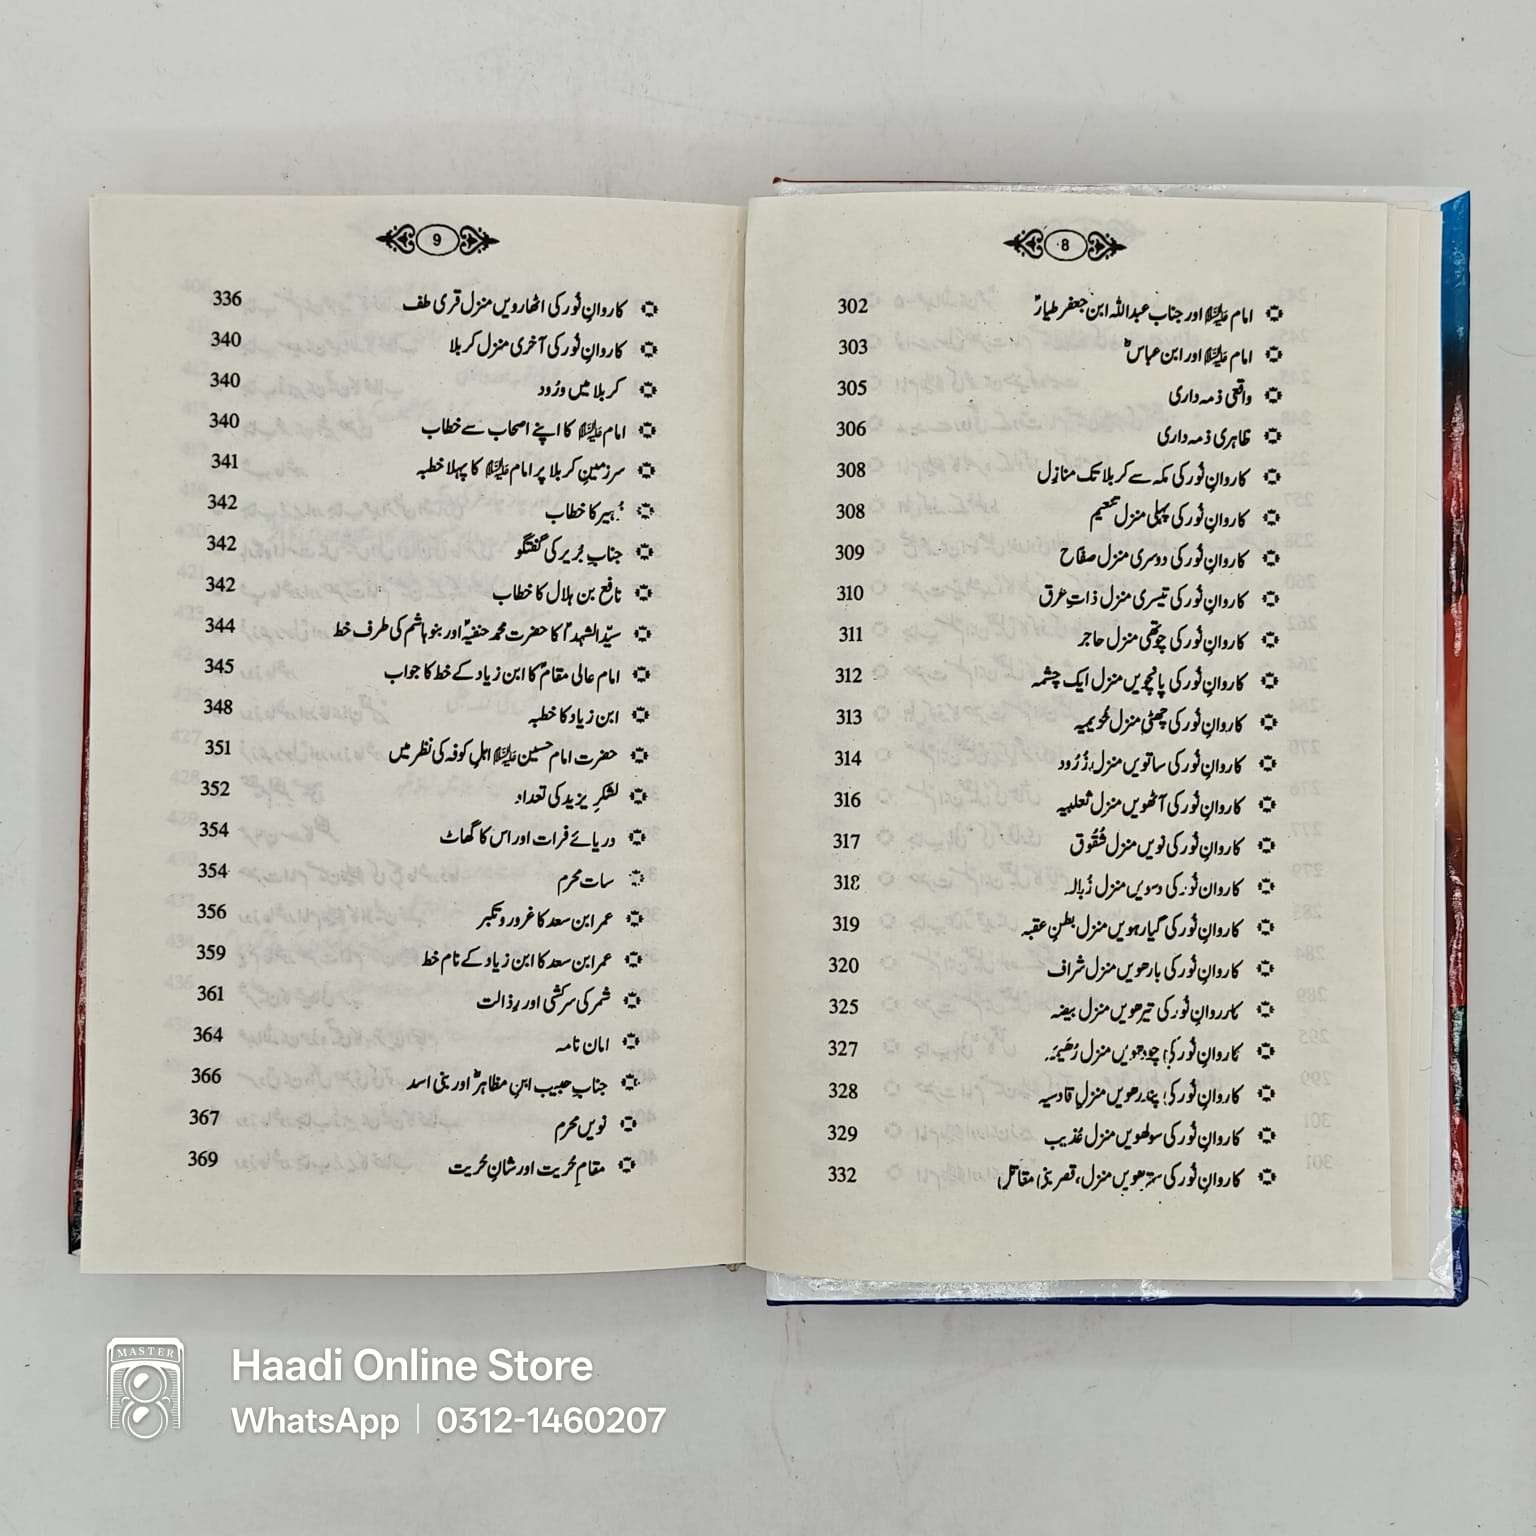 8
امام علیہ السلام اور جناب عبداللہ ابن جعفر طیارؑ 302
امام علیہ السلام اور ابن عباسؓ 303
واقعی ذمہ داری 305
ظاہری ذمہ داری 306
کاروانِ نُور کی مکہ سے کربلا تک منازل 308
کاروانِ نُور کی پہلی منزل تنعیم 308
کاروانِ نُور کی دوسری منزل صفاح 309
کاروانِ نُور کی تیسری منزل ذاتِ عرق 310
کاروانِ نُور کی چوتھی منزل حاجر 311
کاروانِ نُور کی پانچویں منزل ایک چشمہ 312
کاروانِ نُور کی چھٹی منزل خُزیمیہ 313
کاروانِ نُور کی ساتویں منزل زُرُود 314
کاروانِ نُور کی آٹھویں منزل ثعلبیہ 316
کاروانِ نُور کی نویں منزل شُقُوق 317
کاروانِ نُور کی دسویں منزل زُبالہ 318
کاروانِ نُور کی گیارہویں منزل بطنِ عقبہ 319
کاروانِ نُور کی بارھویں منزل شراف 320
کارروانِ نُور کی تیرھویں منزل بیضہ 325
کاروانِ نُور کی چودھویں منزل رُھَیمَہ 327
کاروانِ نُور کی پندرھویں منزلِ قادسیہ 328
کاروانِ نُور کی سولھویں منزل عُذیب 329
کاروانِ نُور کی سترھویں منزل، قصر بنی مقاتل 332
9
کاروانِ نُور کی اٹھارویں منزل قری طف 336
کاروانِ نُور کی آخری منزل کربلا 340
کربلا میں ورُود 340
امام علیہ السلام کا اپنے اصحاب سے خطاب 340
سرزمینِ کربلا پر امام علیہ السلام کا پہلا خطبہ 341
زُہیر کا خطاب 342
جناب بُریر کی گفتگو 342
نافع بن ہلال کا خطاب 342
سیّد الشہداؑ کا حضرت محمد حنفیہؑ اور بنو ہاشم کی طرف خط 344
امام عالی مقامؑ کا ابن زیاد کے خط کا جواب 345
ابن زیاد کا خطبہ 348
حضرت امام حسین علیہ السلام اہلِ کوفہ کی نظر میں 351
لشکرِ یزید کی تعداد 352
دریائے فرات اور اس کا گھاٹ 354
سات محرم 354
عمر ابن سعد کا غرور و تکبر 356
عمر ابن سعد کا ابن زیاد کے نام خط 359
شمر کی سرکشی اور رذالت 361
امان نامہ 364
جنابِ حبیب ابنِ مظاہرؓ اور بنی اسد 366
نویں محرم 367
مقامِ حُریت اور شانِ حُریت 369
MASTER
Haadi Online Store
WhatsApp | 0312-1460207